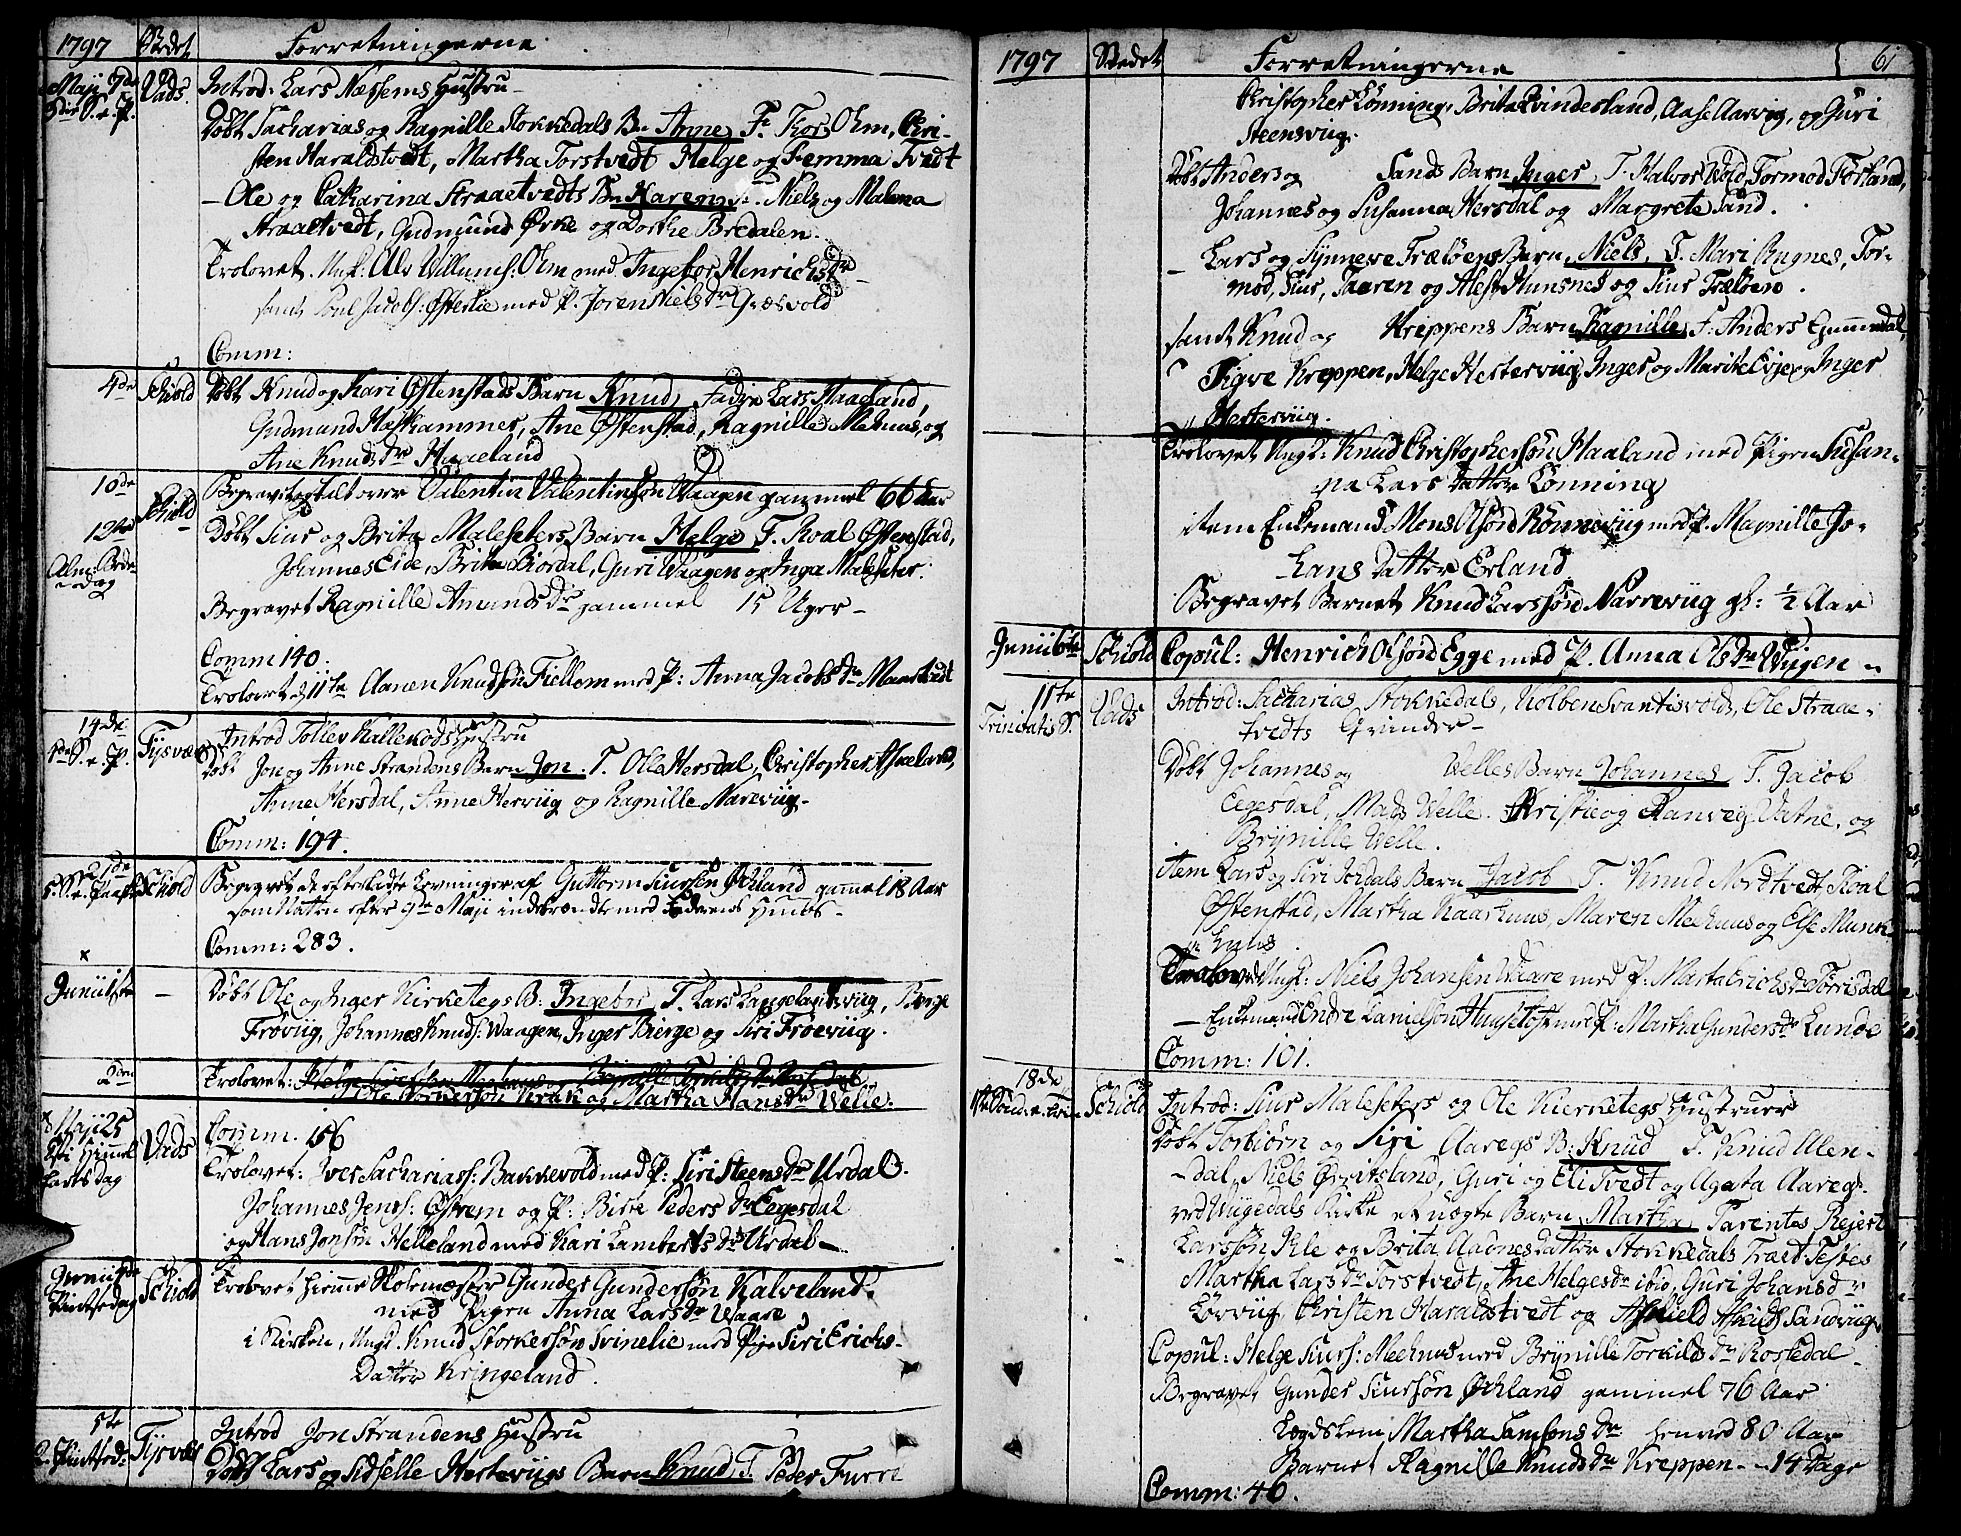 1797 Stedet Forretningerne
Maji 7de Vads. Introd: Lars Næssems Hustru
3die S. e. P.
Døbt Sacharias og Ragnille Stokkedals Bn Anne F. Thor Ohm, Chri-
sten Haraldstvedt, Martha Torstvedt Helge og Femma Tvedt
- Ole og Catharina Straaetvedts Bn Karen F. Niels og Malena
Straaetvedt, Gudmund Ørke og Dorthe Bredalen.
Trolovet. Ungk: Alv Willums: Ohm med Ingebor Henrichsdr
samt Poul Jacobs: Østerlie med P. Joren Nielsdr Græsvold
Comm:
4de Schiold Døbt Knud og Kari Østenstads Barn Knud, Fadre Lars Haaeland,
Gudmund Hashammer, Ane Østenstad, Ragnille Mehuus, og
Ane Knudsdr Haaeland
10de Begravelse holt over Valentin Valentinsøn Waagen gammel 66 Aar
12te Schiold Døbt Siur og Brita Malesetes Barn Helge F. Roal Østenstad,
Alm: Bede- Johannes Eide, Brita Biordal, Guri Waagen og Inga Maleseter.
dag
Begravet Ragnille Amundsdr gammel 15 Uger
Comm 140.
Trolovet d 11te Aanen Knudsøn Fiellem med P: Anna Jacobsdr Maastvedt
14de Tysvær Introd Tollev Kallekods Hustru
4de S. e. P. Døbt Jon og Anne Strandens Barn Jon. F. Olle Hersdal, Christopher Askeland,
Anne Hersdal, Anne Hervиg og Ragnille Nareviig.
Comm: 194.
21de Schiold Begravet de efterladte Levninger af Guttorm Siursen Øchland gammel 18 Aar
5 S. e. Paaske som Natten efter 9de Maji indebrændte med Faderens Huus
Comm: 283.
Junii 1ste - Døbt Ole og Inger Kirketegs B: Ingebor F. Lars Langelandsviig, Børge
Frøviig, Johannes Knuds: Waagen, Inger Bierge og Siri Frøeviig.
2den Trolovet: Helge Siursøn Meehuus og Brynille Torkildsdr Rossedal
Ole Torkersøn Krak og Martha Hansdr Welle.
Maji 25 Vads Comm. 156
Christi Himmel
farts dag Trolovet: Iver Sachariass: Bakkevold med P: Siri Steensdr Urdal.
Johannes Jens: Østrem og P: Birte Pedersdr Eegesdal
og Hans Jonsøn Helleland med Kari Lambertsdr Urdal
Junii 4de Schiold Trolovet hiemme Skolemester Gunder Gundersøn Kalveland
Pintsedag med Pigen Anna Larsdr Waare
i Kirken, Ungk. Knud Storkersøn Svinelie med Pige Siri Erichs-
Datter Kringeland.
5te Tysvær Introd Jon Strandens Hustru
2. Pintsed: Døbt Lars og Sidselle Hesteviigs Barn Knud F. Peder Furre
1797 Stedet Forretningerne 61
Christopher Lønning, Brita Qvindesland, Aase Aarviig, og Guri
Steensviig.
Døbt Anders og Sands Barn Inger, F. Halvor Wold, Tormod Førland,
Johannes og Susanna Hersdal og Margrete Sand.
- Lars og Synneve Træløens Barn, Niels, F. Mari Rugnes, Tor-
mod, Siur, Taaren og Alest Hunsnes og Siur Træløen.
samt Knud og Kreppens Barn Ragnille, F: Anders Gummedal,
Sigve Kreppen, Helge Hesteviig, Inger og Marite Evje og Inger
Hesteviig.
Trolovet Ungk: Knud Christophersøn Haaland med Pigen Susan-
na Larsdatter Lønning
item Enkemand Mons Olsøn Rønneviig med P. Magnille Jo-
hansdatter Erland
Begravet Barnet Knud Larssøn Narreviig gl: ½ Aar
Junii 6te Schiold Copul: Henrich Olsøn Egge med P. Anna Olsdr Viigen
11te Vads Introd: Sacharias Stokkedals, Kolben Svantisvolds, Ole Straae-
Trinitatis S. tvedts Qvinder
Døbt Johannes og Welles Barn Johannes F. Jacob
Eegesdal, Mads Welle. Kristie og Ranveg Vatne, og
Brynille Welle.
item Lars og Siri Jordals Barn Jacob F. Knud Nordtvedt Roal
Østenstad, Martha Kaarhuus, Maren Meehuus og Else Munk-
huus
Trolovede Ungk: Niels Johansen Waare med P: Marta Erichsdr Tørrisdal
- Enkemand Endre Danielsøn Huustoft med P: Martha Gundersdr Lunde
Comm: 101.
18de Schiold Introd: Siur Maleseters og Ole Kierketegs Hustruer
1ste Sønd. e. Trin. Døbt Torbiørn og Siri Aaregs B: Knud F. Knud Alen-
dal, Niels Øritsland, Guri og Eli Tvedt og Agata Aareg.
ved Viigedals Kirke et uægte Barn Martha Parentes Rejert
Larssøn Ihle og Brita Aadnesdatter Stokkedals Træet Testes
Martha Larsdr Torstvedt, Ane Helgesdr ibid, Guri Johansdr
Lørviig Christen Haraldstvedt og Askield Askilds Sandviig
Copul: Helge Siurs: Meehuus med Brynille Torkildsdr Rossedal
Begravet Gunder Siursøn Øchland gammel 76 Aar
Lægdslem Martha Samsonsdr henved 80 Aar
Barnet Ragnille Knudsdr Kreppen - 14 Dage
Comm: 46.